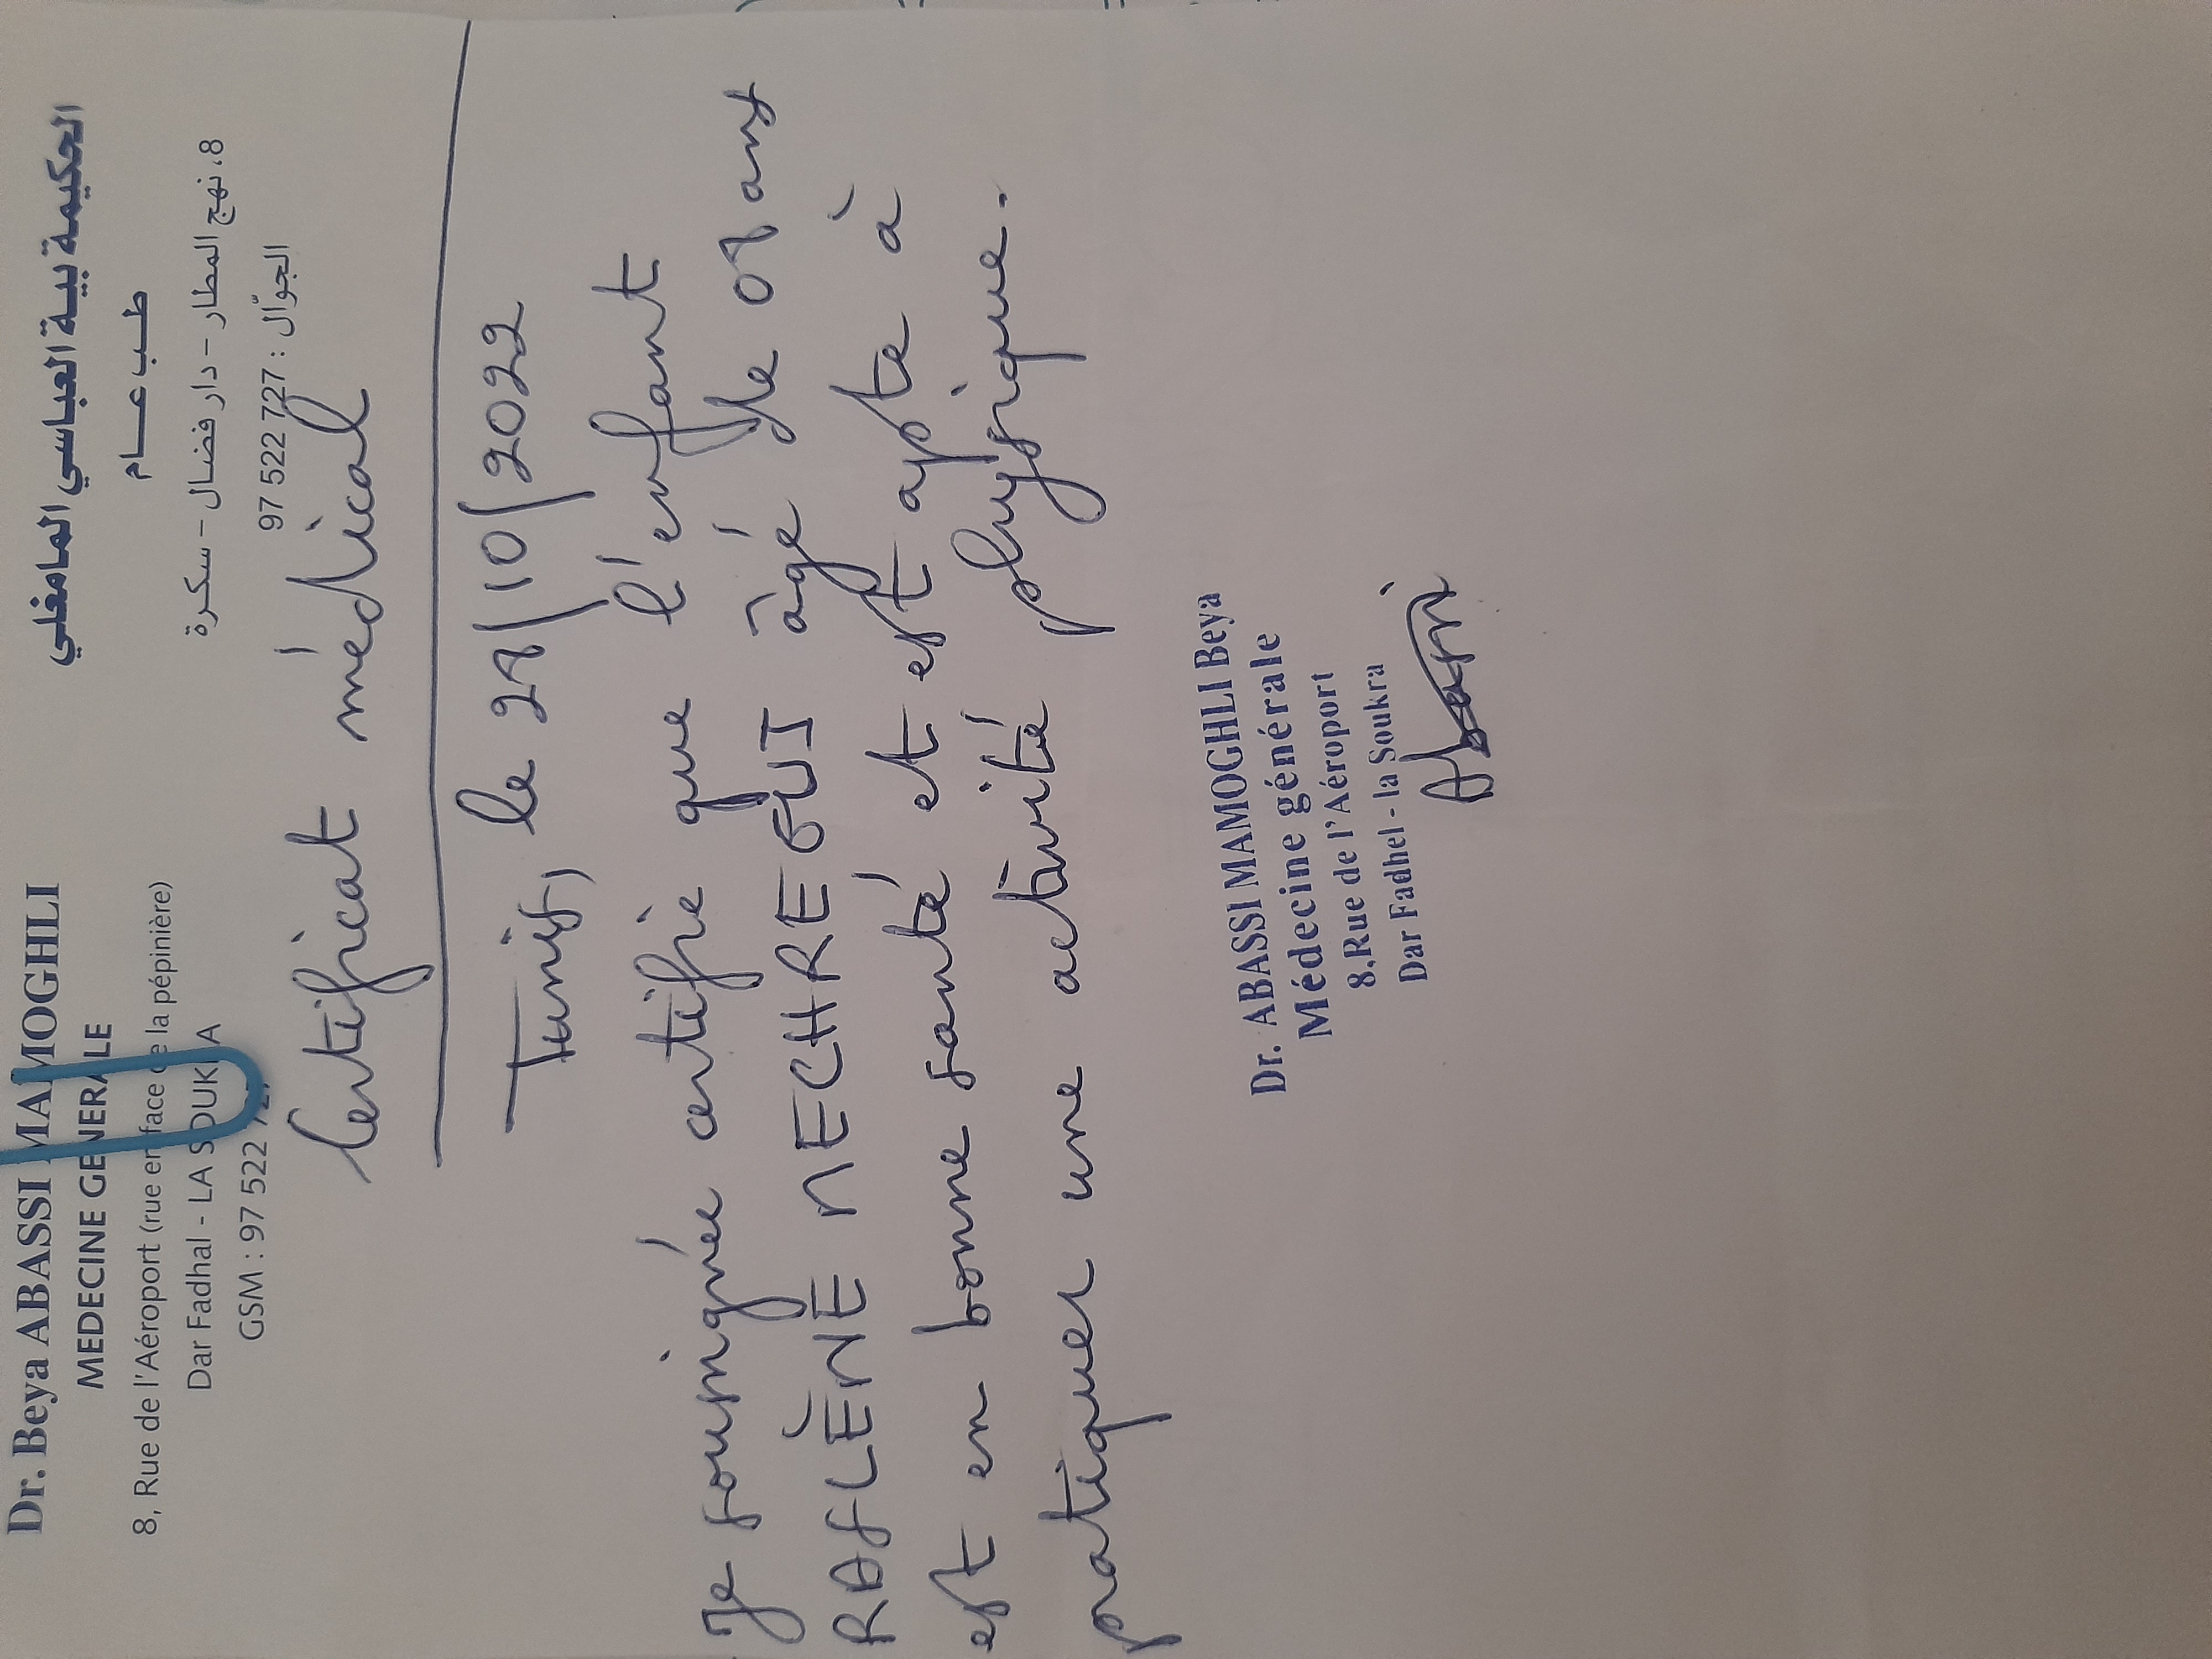 Dr. Beya ABASSI MAMOGHLI
MEDECINE GENERALE
8, Rue de l'Aéroport (rue en face de la pépinière)
Dar Fadhal - LA SOUKRA
GSM : 97 522 727
الحكيمة بية العباسي المامغلي
طب عام
8، نهج المطار - دار فضال - سكرة
الجوّال : 727 522 97
Certificat médical
Tunis, le 28/10/2022
Je sousignée certifie que l'enfant
RASLÈNE NECHREGUI âgé de 08 ans
est en bonne santé et est apte à
pratiquer une activité physique.
Dr. ABASSI MAMOGHLI Beya
Médecine générale
8,Rue de l'Aéroport
Dar Fadhel - la Soukra
Abassi